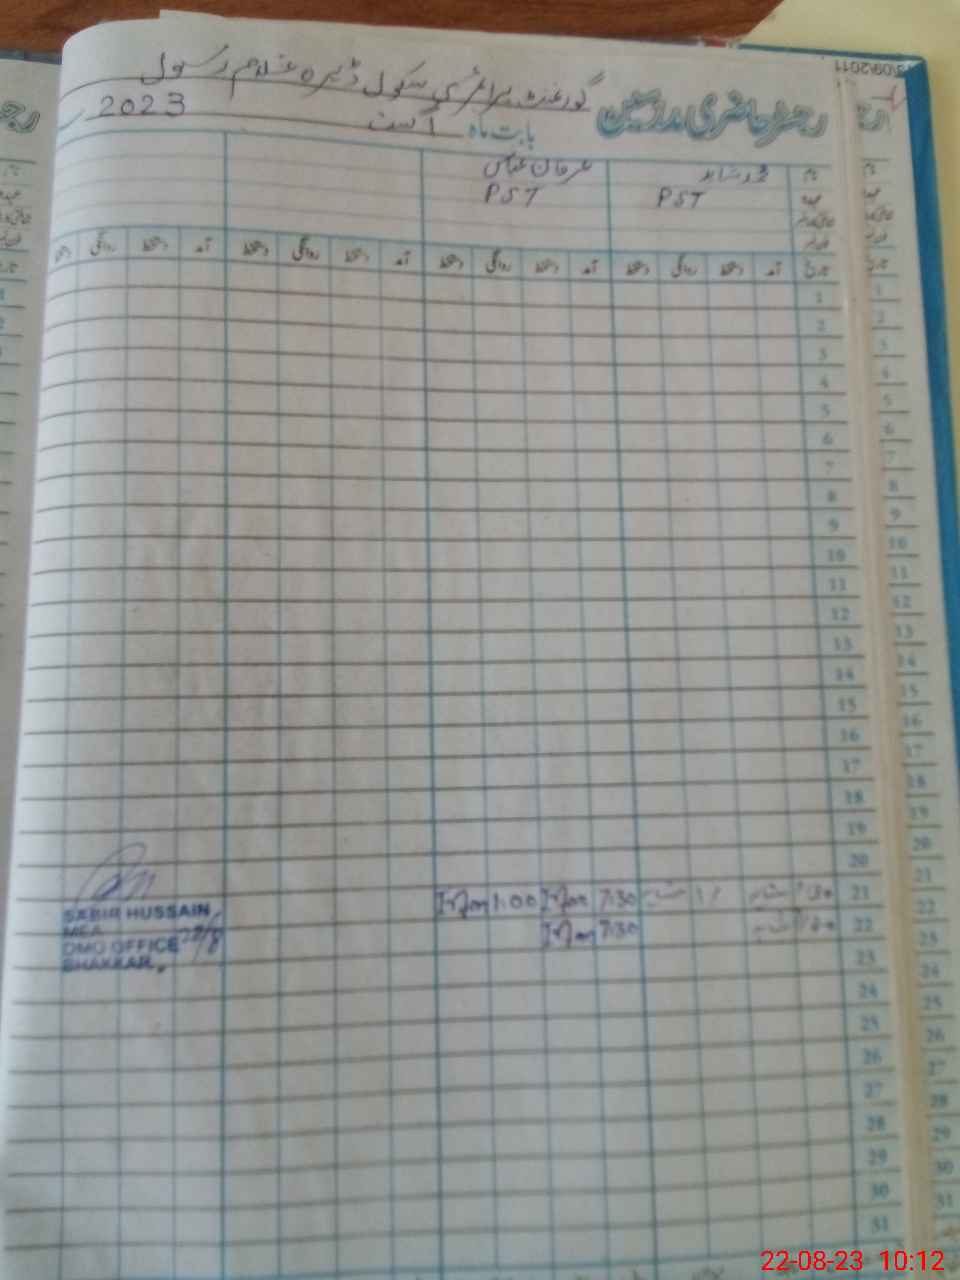 گورنمنٹ پرائمری سکول ڈیرہ غلام رسول
رجسٹر حاضری مدرسین
بابت ماہ اگست 2023
نام محمد شاہد عرفان عباس
عہدہ PST PST
تاریخ آمد دستخط روانگی دستخط آمد دستخط روانگی دستخط آمد دستخط روانگی دستخط آمد دستخط روانگی دستخط
1
2
3
4
5
6
7
8
9
10
11
12
13
14
15
16
17
18
19
20
21 7:30 شاہد 7:30 Irfan 1:00 Irfan
22 7:30 شاہد 7:30 Irfan
23
24
25
26
27
28
29
30
31
SABIR HUSSAIN
MEA
DMO OFFICE
BHAKKAR
22/8
22-08-23 10:12